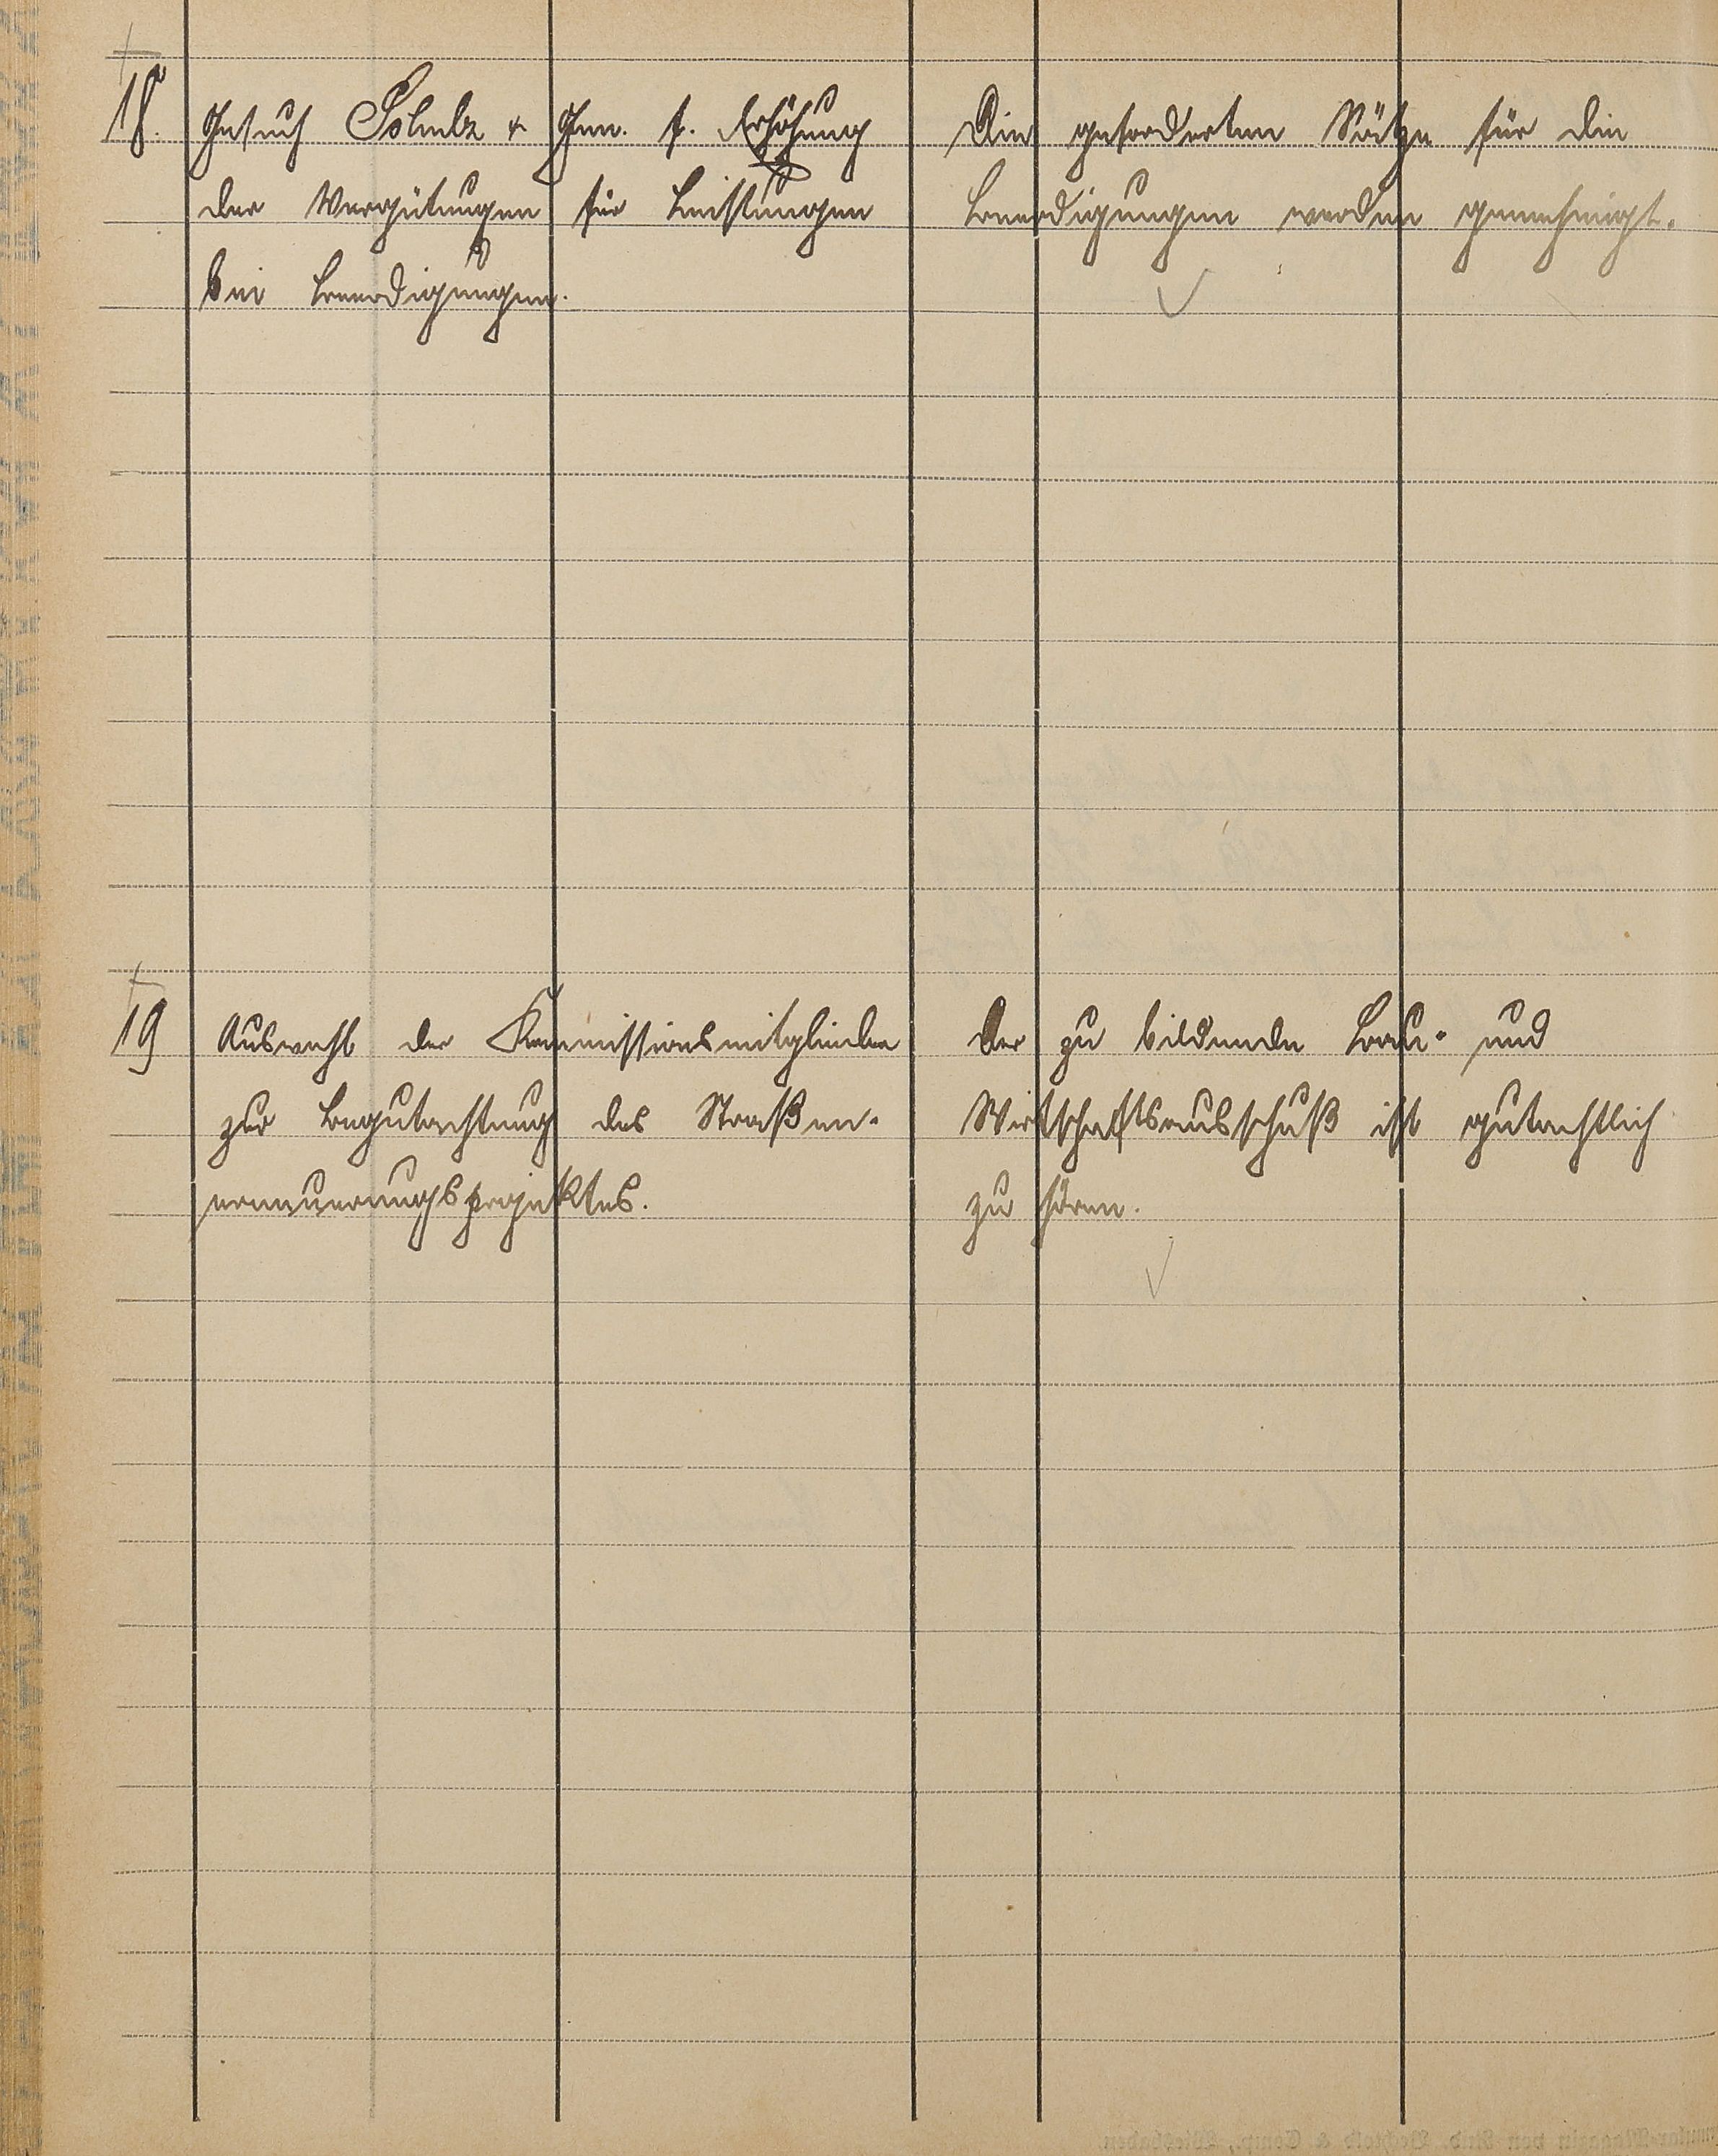 18. Gesuch Schulz & Gen. f. Erhöhung
der Vergütungen für Leistungen
bei Beerdigungen.
Die geforderten Sätze für die
Beerdigungen werden genehmigt.
19 Auswahl der Kommissionsmitglieder
zur Begutachtung des Straßen-
erneuerungsprojektes.
Der zu bildende Bau- und
Wirtschaftsausschuß ist gutachtlich
zu hören.